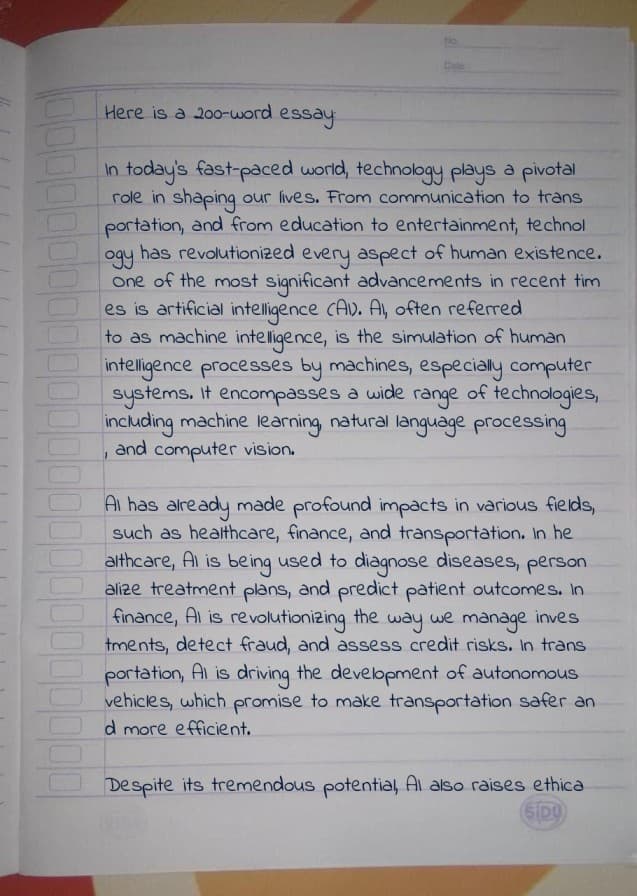 No.
Date
Here is a 200-word essay:
In today's fast-paced world, technology plays a pivotal
role in shaping our lives. From communication to trans
portation, and from education to entertainment, technol
ogy has revolutionized every aspect of human existence.
One of the most significant advancements in recent tim
es is artificial intelligence (AI). AI, often referred
to as machine intelligence, is the simulation of human
intelligence processes by machines, especially computer
systems. It encompasses a wide range of technologies,
including machine learning, natural language processing
, and computer vision.
AI has already made profound impacts in various fields,
such as healthcare, finance, and transportation. In he
althcare, AI is being used to diagnose diseases, person
alize treatment plans, and predict patient outcomes. In
finance, AI is revolutionizing the way we manage inves
tments, detect fraud, and assess credit risks. In trans
portation, AI is driving the development of autonomous
vehicles, which promise to make transportation safer an
d more efficient.
Despite its tremendous potential, AI also raises ethica
SIDU